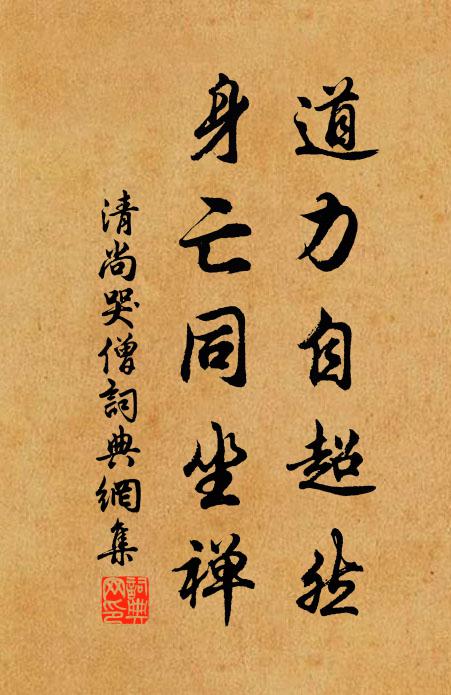 道力自超然
身亡同坐禅
清尚哭僧詞典網集
詞典網印